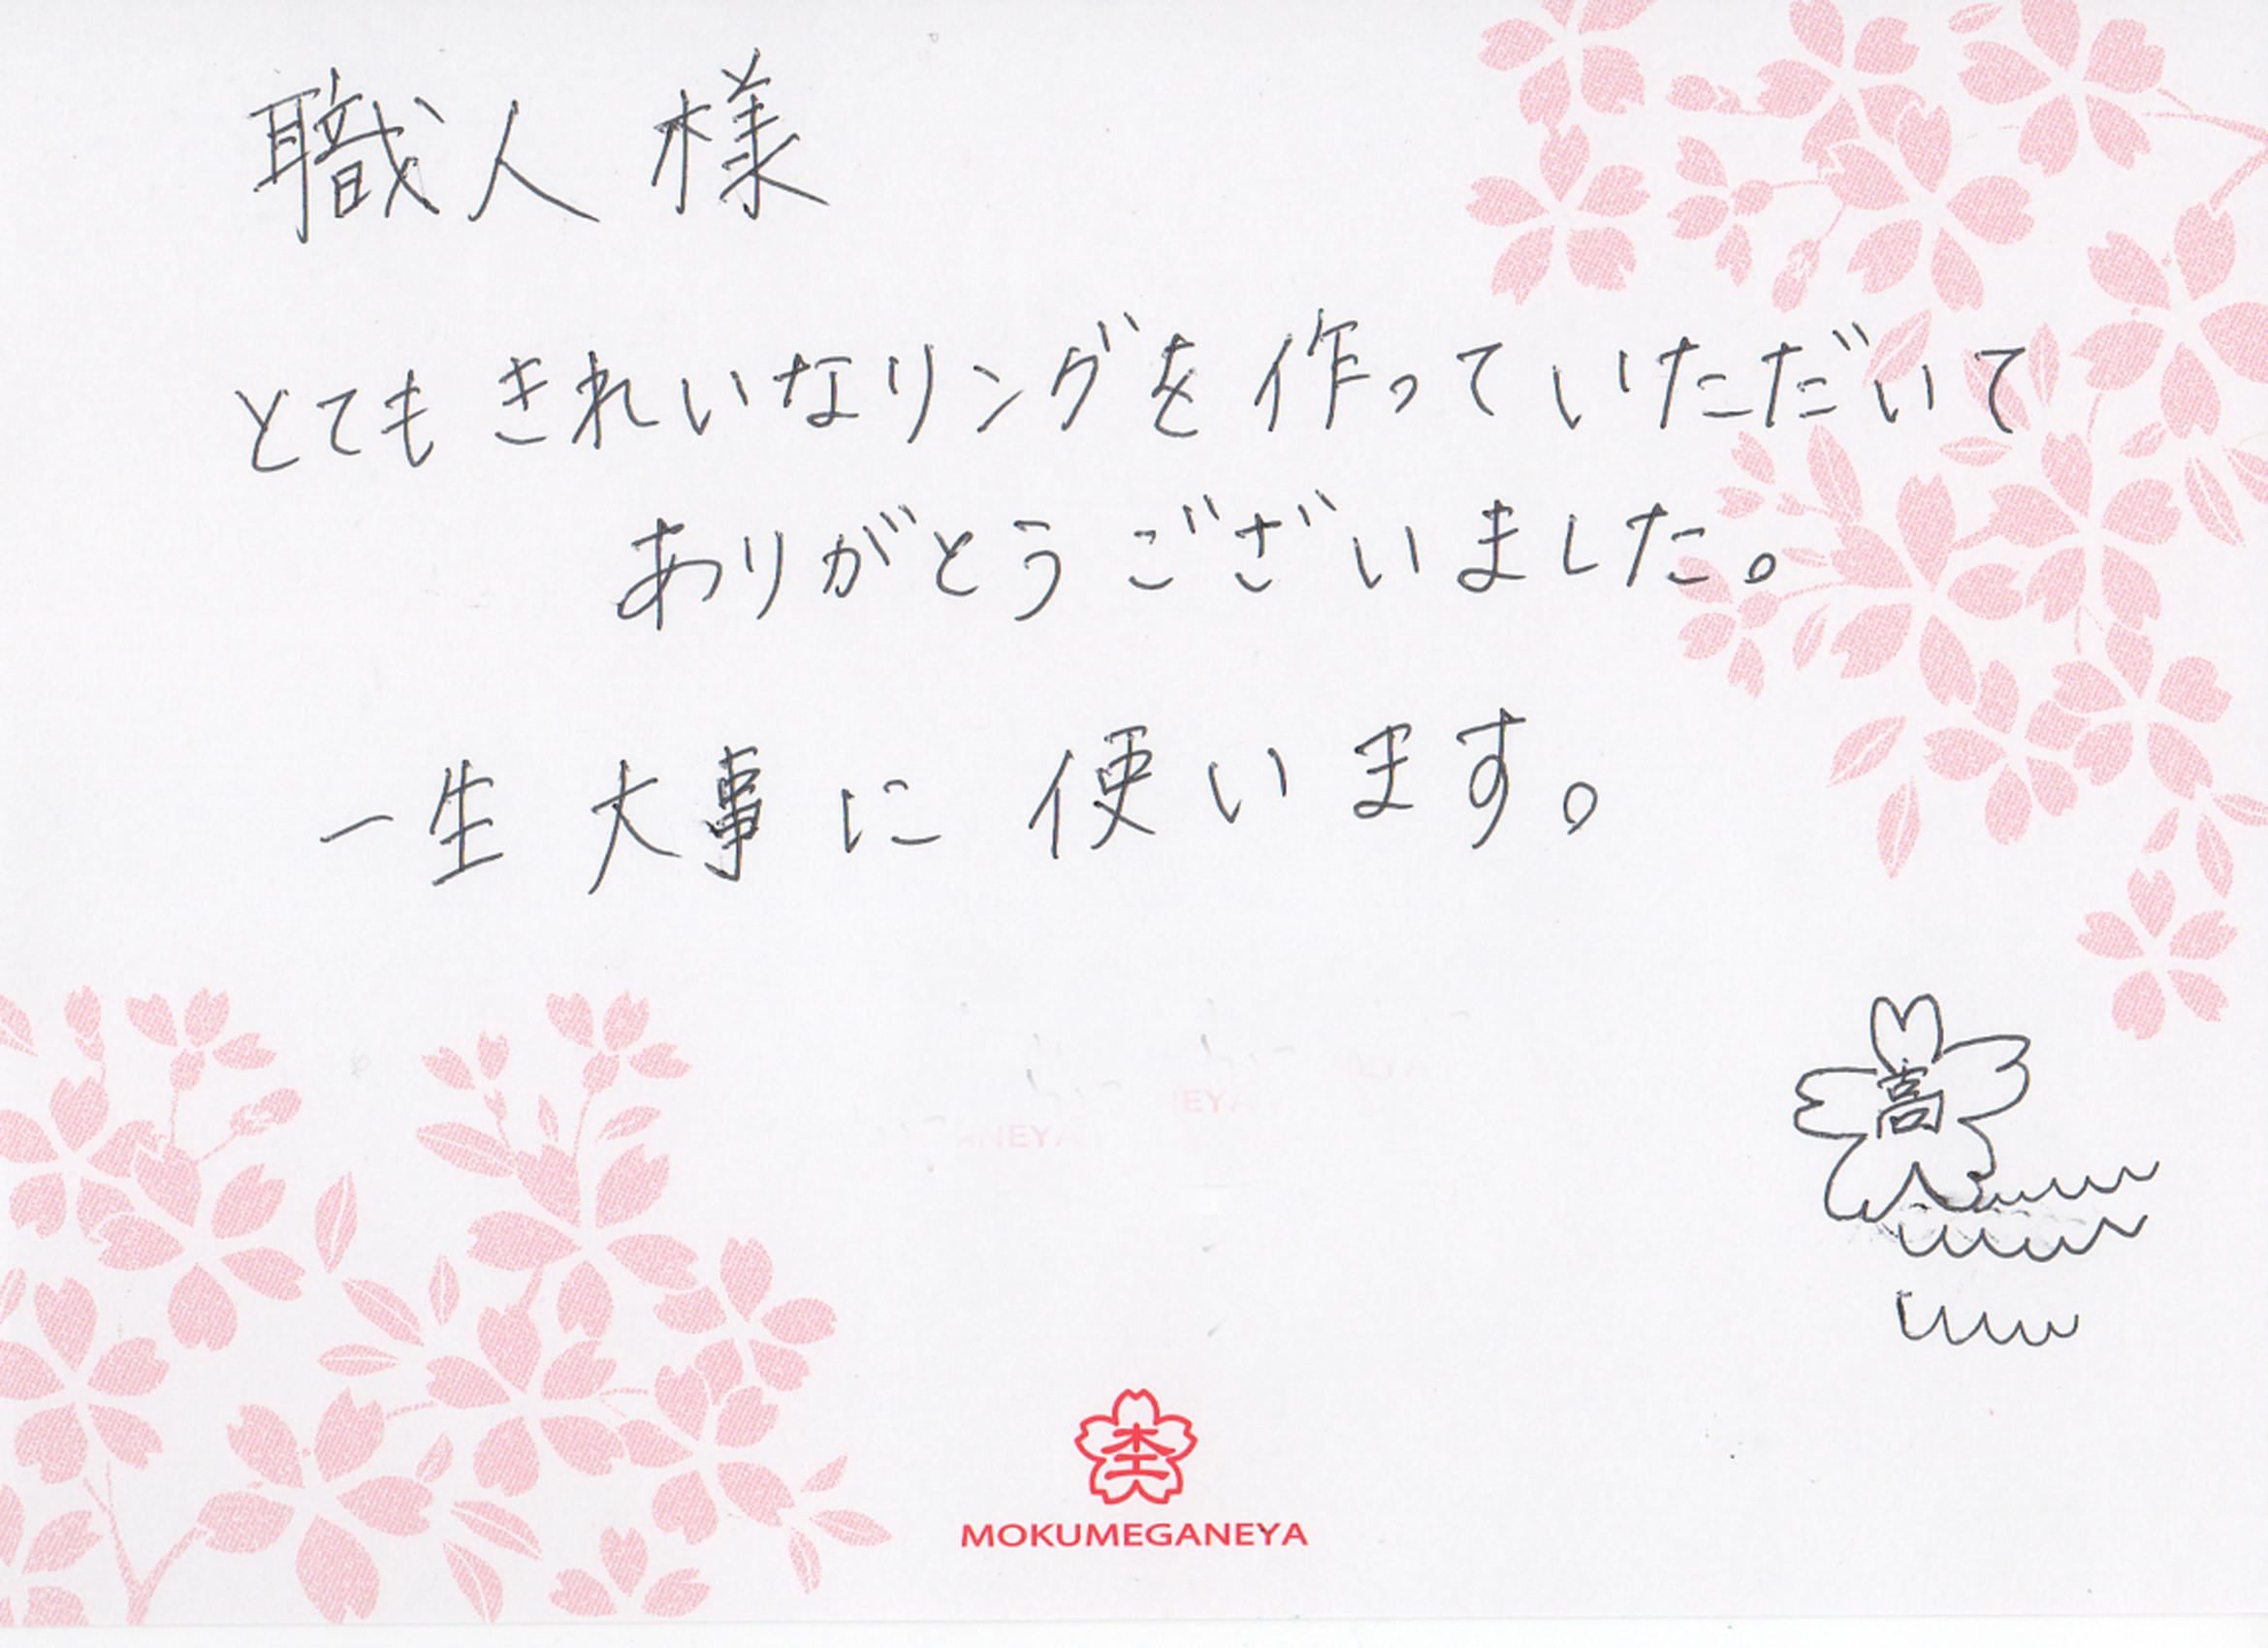 職人 様
とても きれいなリングを 作って いただいて
ありがとう ございました。
一生 大事に 使います。
高
杢
MOKUMEGANEYA